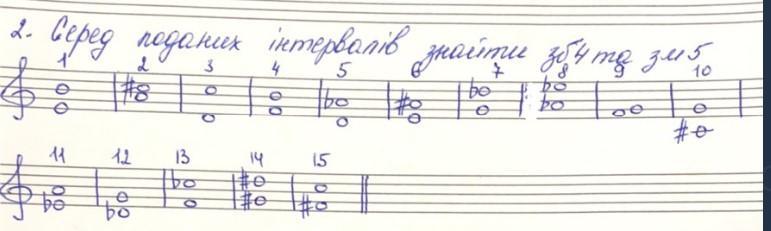 2. Серед поданих інтервалів знайти зб4 та зм5
1 2 3 4 5 6 7 8 9 10
11 12 13 14 15